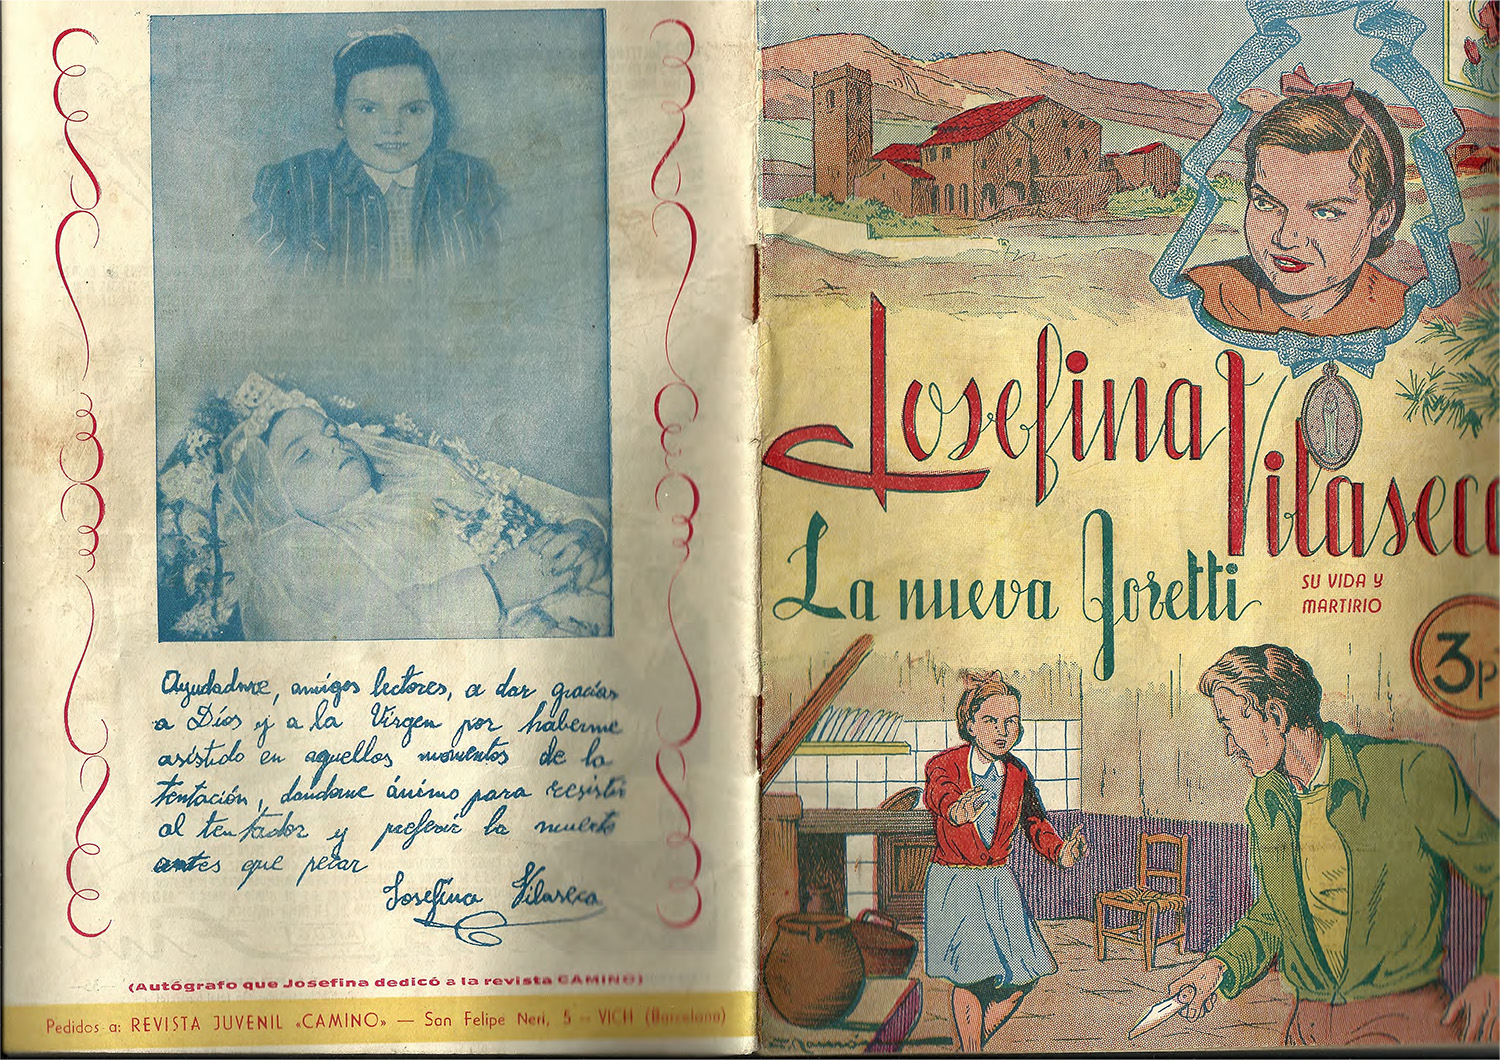 Ayudadme, amigos lectores, a dar gracias
a Díos y a la Virgen por haberme
asistido en aquellos momentos de la
tentación, dandome ánimo para resistir
al tentador y preferir la muerte
antes que pecar
Josefina Vilaseca
(Autógrafo que Josefina dedicó a la revista CAMINO)
Pedidos a: REVISTA JUVENIL «CAMINO» — San Felipe Neri, 5 — VICH (Barcelona)
Josefina
Vilaseca
La nueva Goretti
SU VIDA Y
MARTIRIO
3 p